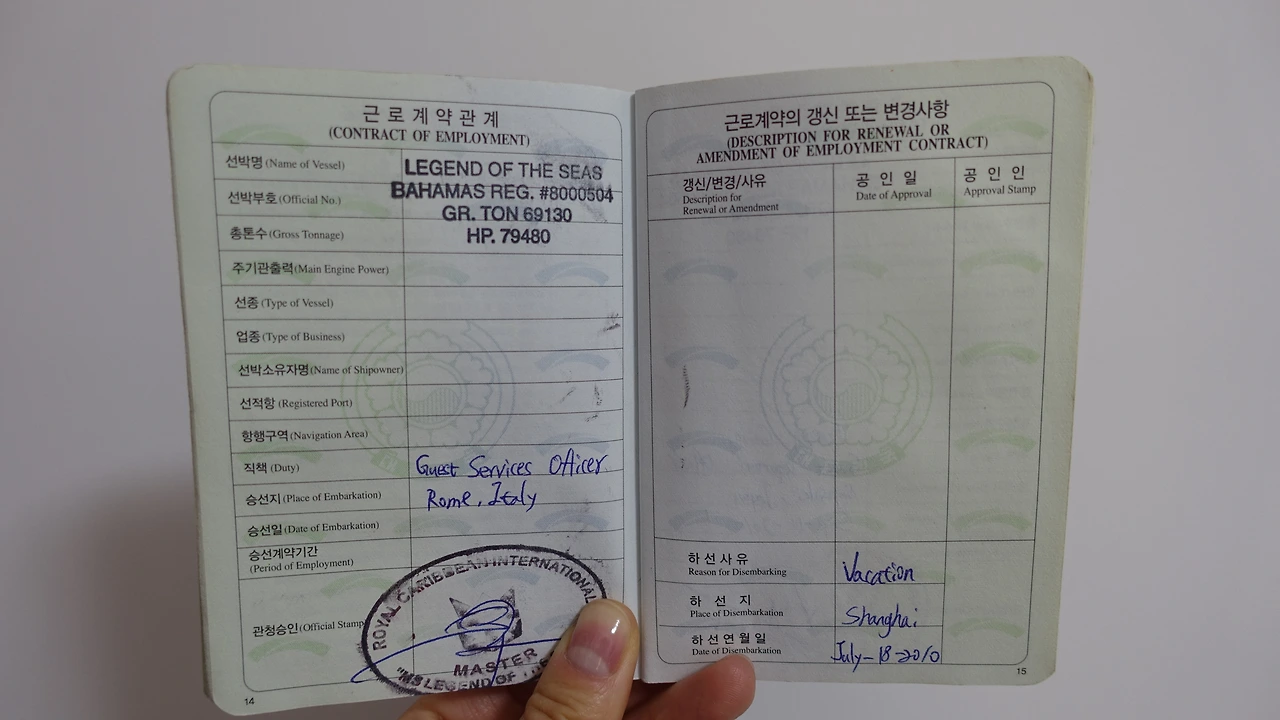 근로계약관계
(CONTRACT OF EMPLOYMENT)
선박명 (Name of Vessel)
LEGEND OF THE SEAS
선박부호 (Official No.)
BAHAMAS REG. #8000504
GR. TON 69130
총톤수 (Gross Tonnage)
HP. 79480
주기관출력 (Main Engine Power)
선종 (Type of Vessel)
업종 (Type of Business)
선박소유자명 (Name of Shipowner)
선적항 (Registered Port)
항행구역 (Navigation Area)
직책 (Duty) Guest Services Officer
승선지 (Place of Embarkation) Rome, Italy
승선일 (Date of Embarkation)
승선계약기간
(Period of Employment)
관청승인 (Official Stamp
ROYAL CARIBBEAN INTERNATIONAL
MASTER
"MS LEGEND OF THE
14
근로계약의 갱신 또는 변경사항
(DESCRIPTION FOR RENEWAL OR
AMENDMENT OF EMPLOYMENT CONTRACT)
갱신/변경/사유
Description for
Renewal or Amendment
공인일
Date of Approval
공인인
Approval Stamp
하선사유
Reason for Disembarking
Vacation
하선지
Place of Disembarkation
Shanghai
하선연월일
Date of Disembarkation
July-18-2010
15